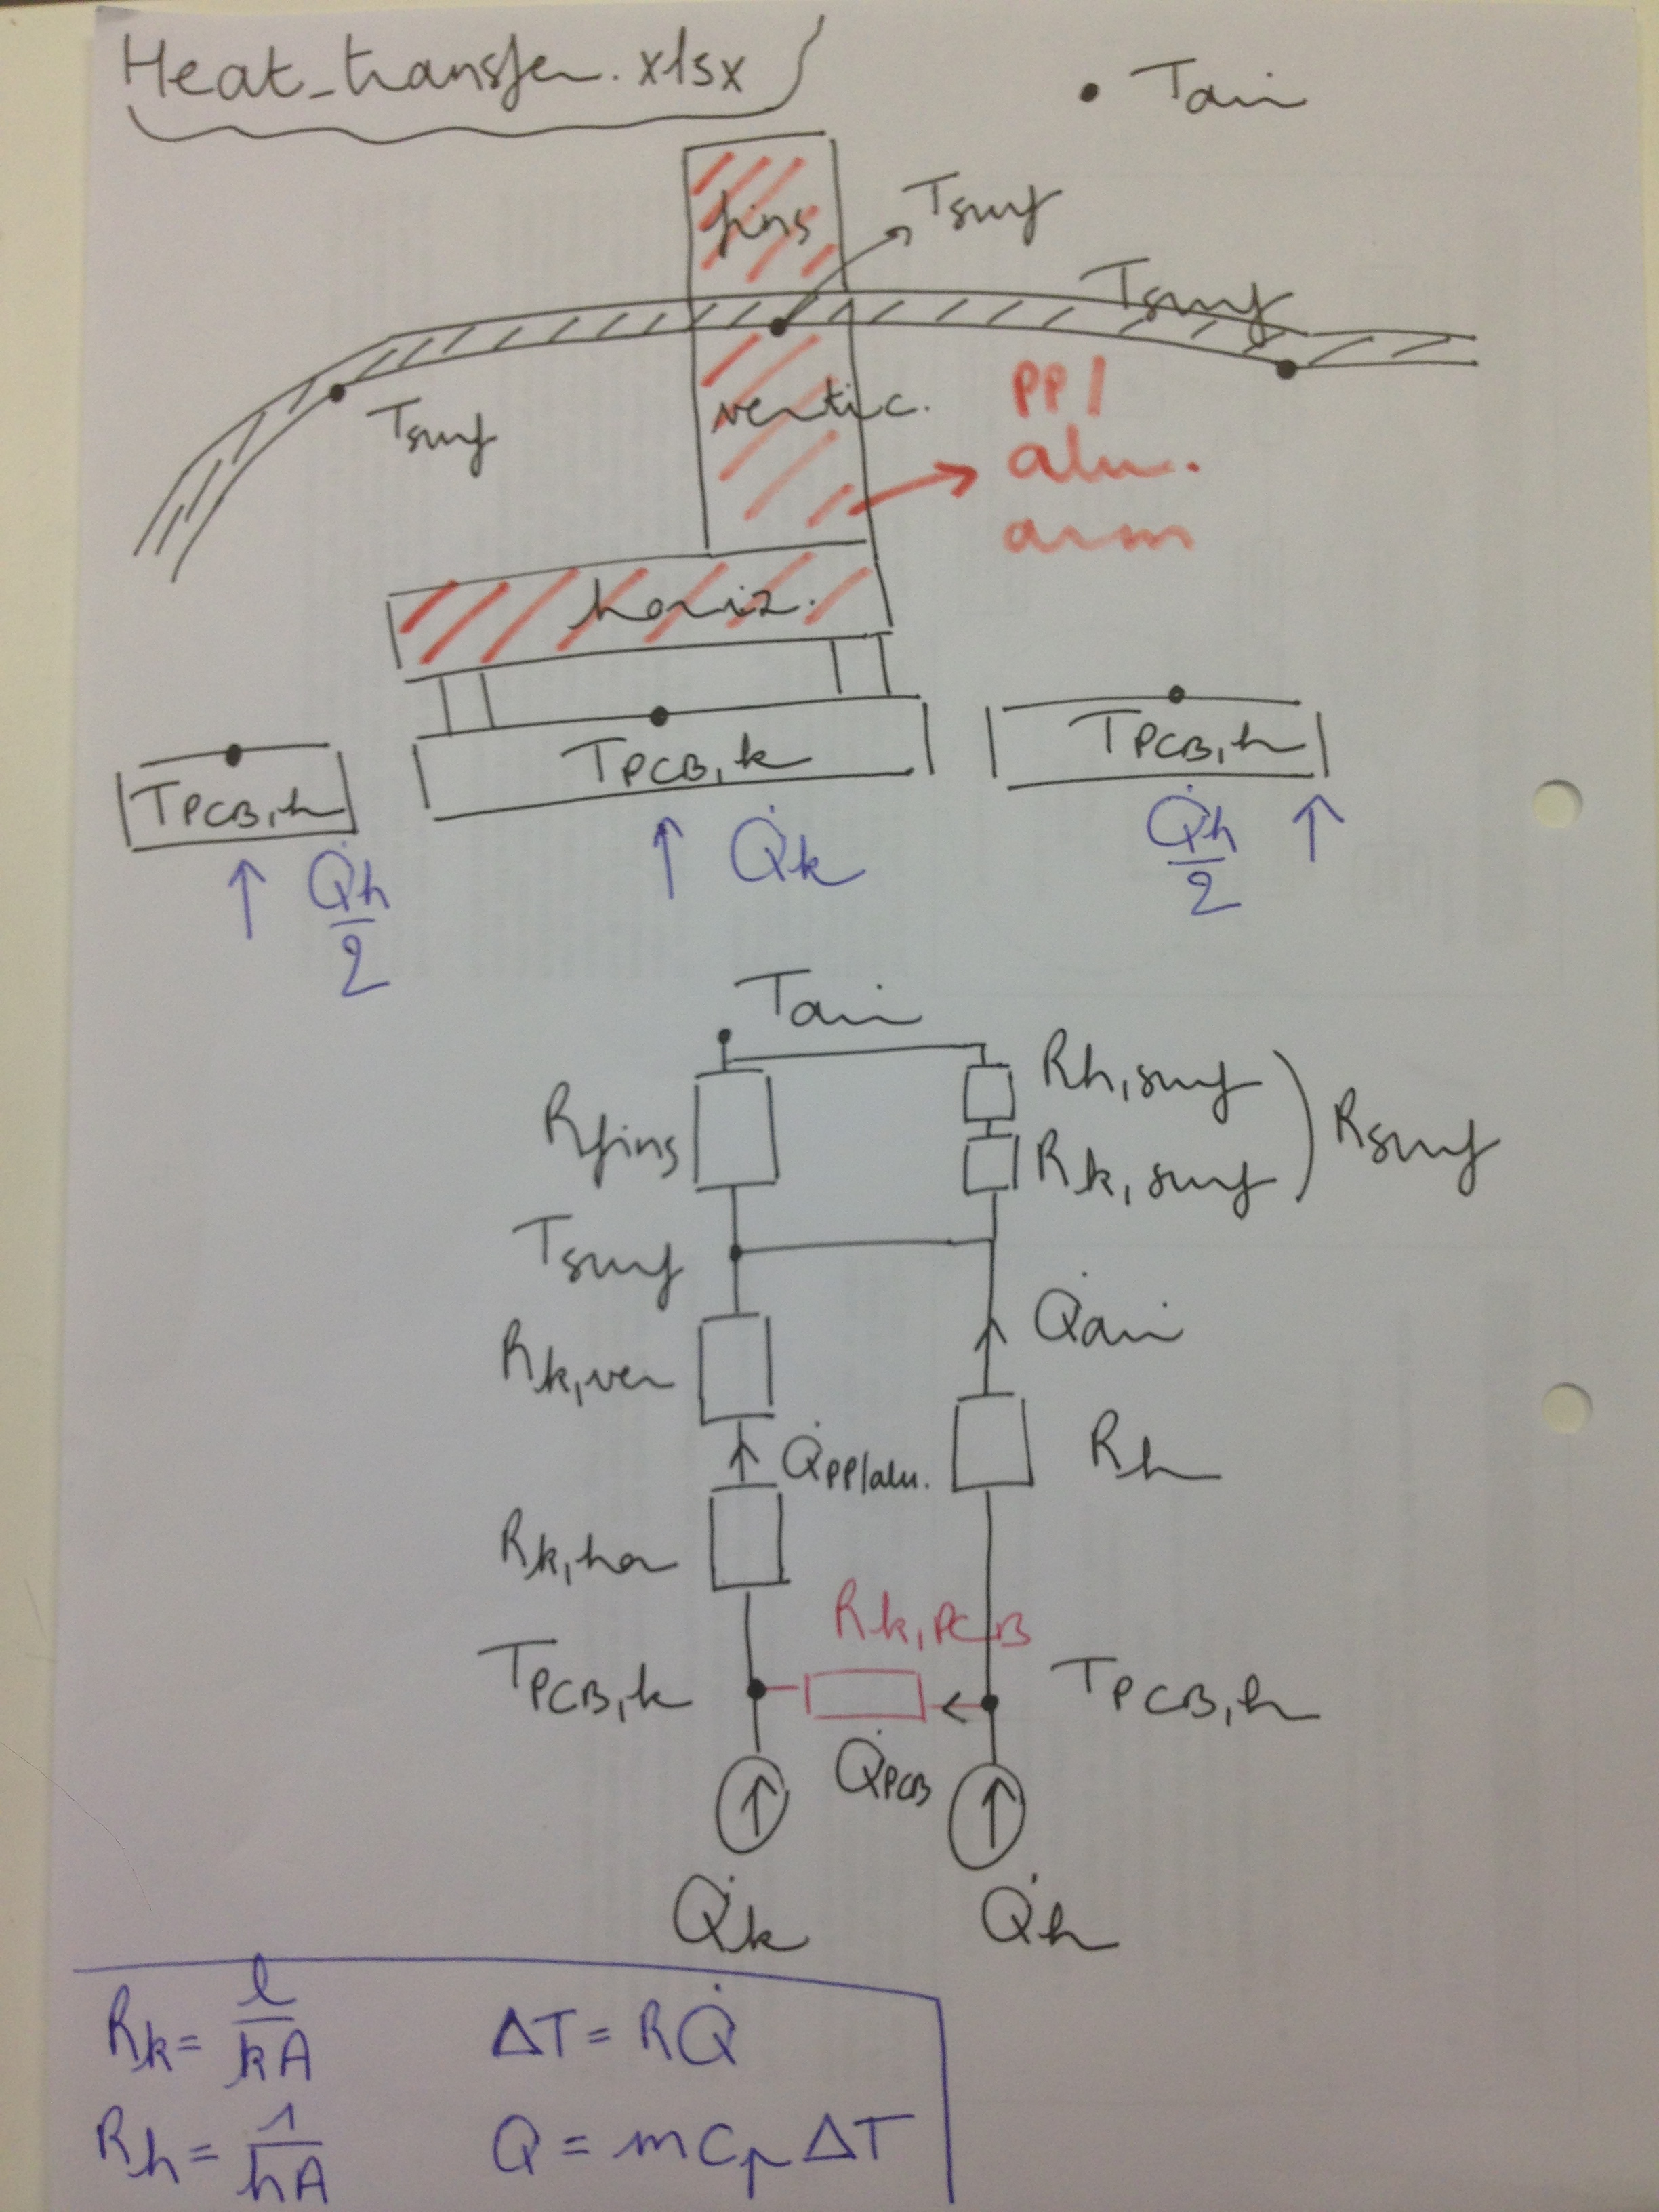 Heat_transfer.xlsx
Tair
fins
Tsurf
Tsurf
Tsurf
vertic.
PP/
alu.
arm
horiz.
TPCB,h
TPCB,k
TPCB,h
Q̇h/2
Q̇k
Q̇h/2
Tair
Rfins
Rh,surf
Rk,surf
Rsurf
Tsurf
Q̇air
Rk,ver
Q̇PP/alu.
Rh
Rk,hor
Rk,PCB
TPCB,k
TPCB,h
Q̇PCB
Q̇k
Q̇h
Rk = l/kA
ΔT = RQ̇
Rh = 1/hA
Q = mCpΔT